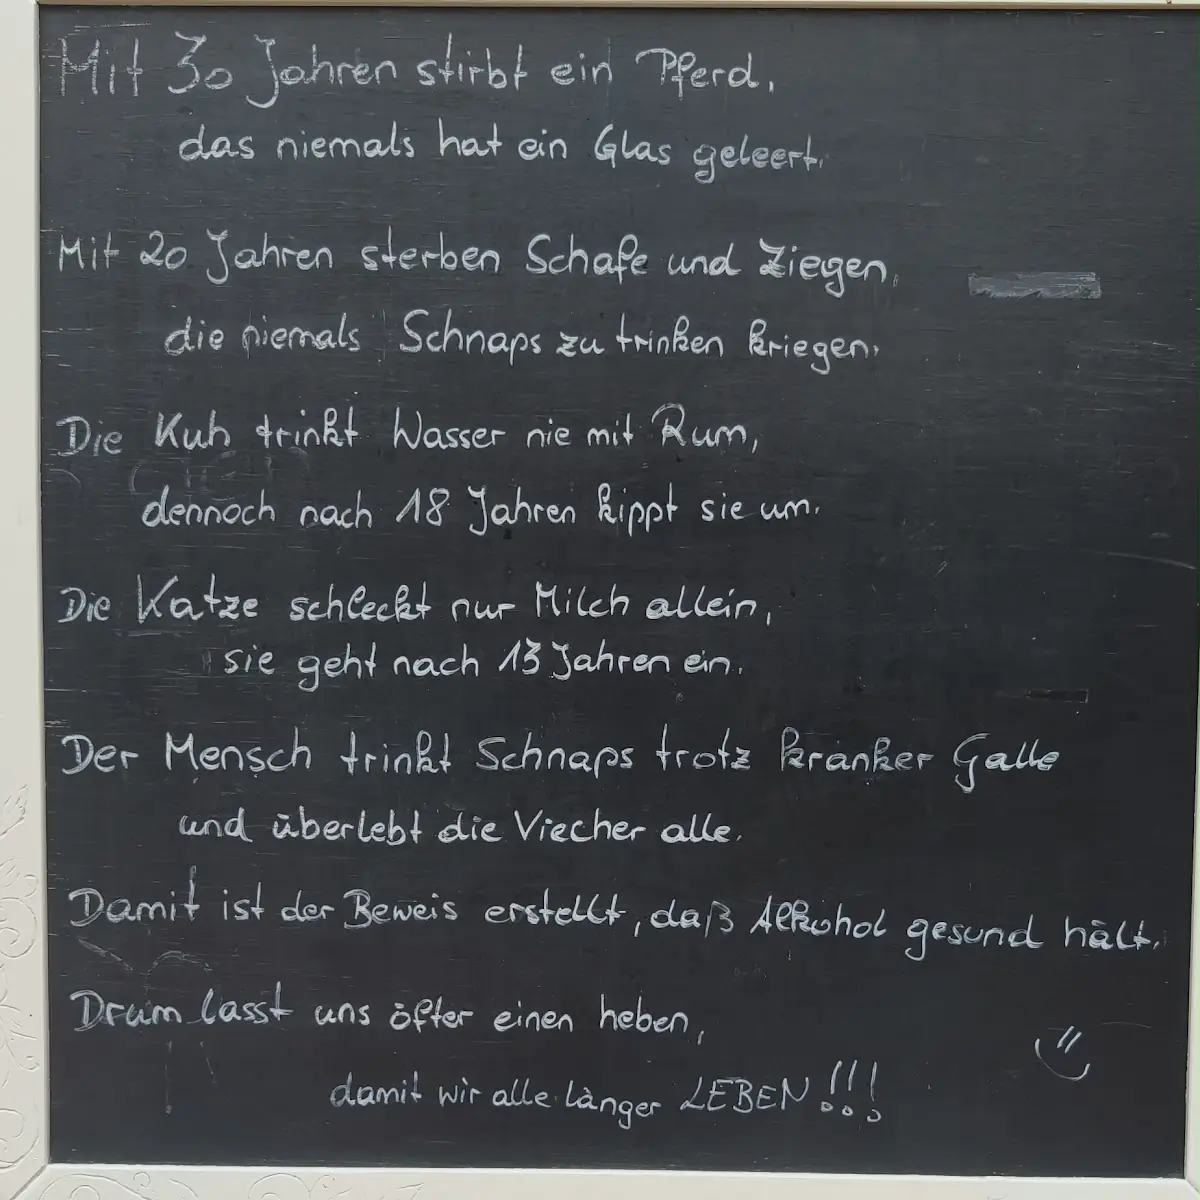 Mit 30 Jahren stirbt ein Pferd,
das niemals hat ein Glas geleert.
Mit 20 Jahren sterben Schafe und Ziegen,
die niemals Schnaps zu trinken kriegen.
Die Kuh trinkt Wasser nie mit Rum,
dennoch nach 18 Jahren kippt sie um.
Die Katze schleckt nur Milch allein,
sie geht nach 13 Jahren ein.
Der Mensch trinkt Schnaps trotz kranker Galle
und überlebt die Viecher alle.
Damit ist der Beweis erstellt, daß Alkohol gesund hält.
Drum lasst uns öfter einen heben,
damit wir alle länger LEBEN!!!